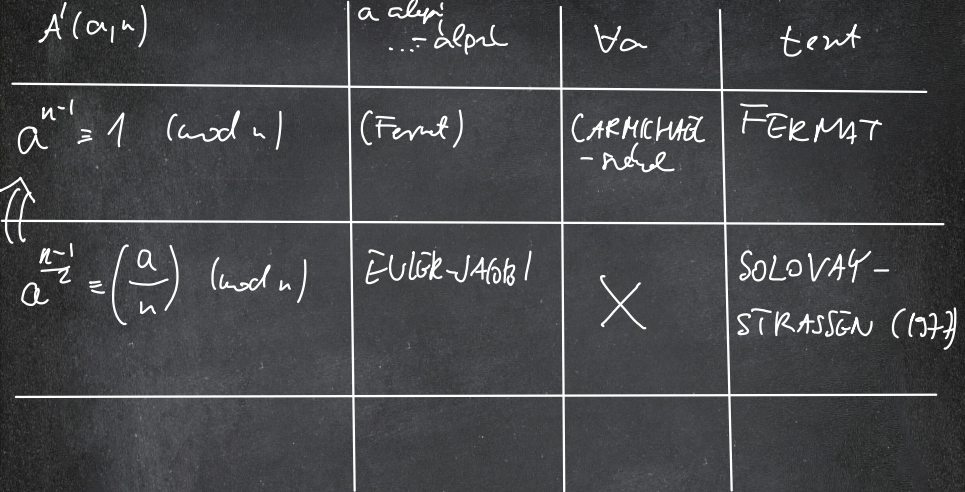 A'(a,n)
a alapú
...-álprím
∀a
teszt
a^{n-1} ≡ 1 (mod n)
(Fermat)
CARMICHAEL
-számok
FERMAT
⇑
a^{\frac{n-1}{2}} ≡ (\frac{a}{n}) (mod n)
EULER-JACOBI
X
SOLOVAY-
STRASSEN (1977)